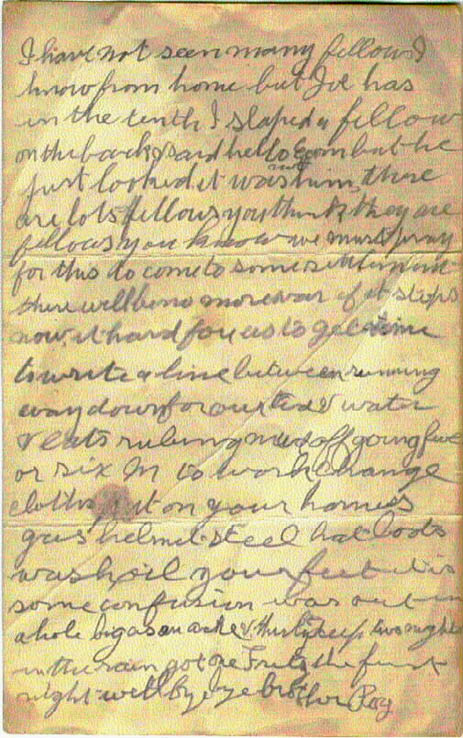 I have not seen many fellows I
know from home but Joe has
in the tenth I slaped a fellow
on the back & said hello Com but he
not
just looked it was him, there
are lots fellows you think they are
fellows you know we must pray
for this to come to some settlement
there will be no more war if it stops
now. it hard for us to get time
to write a line between running
way down for our tea & water
& eats rubing mud off going five
or six m to work change
cloths, put on your harness
gas helmet steel hat boots
wash oil your feet it is
some confusion was out in
a hole big as an acre & thirty deep two nights
in the rain got the first
night well by bye brother Roy